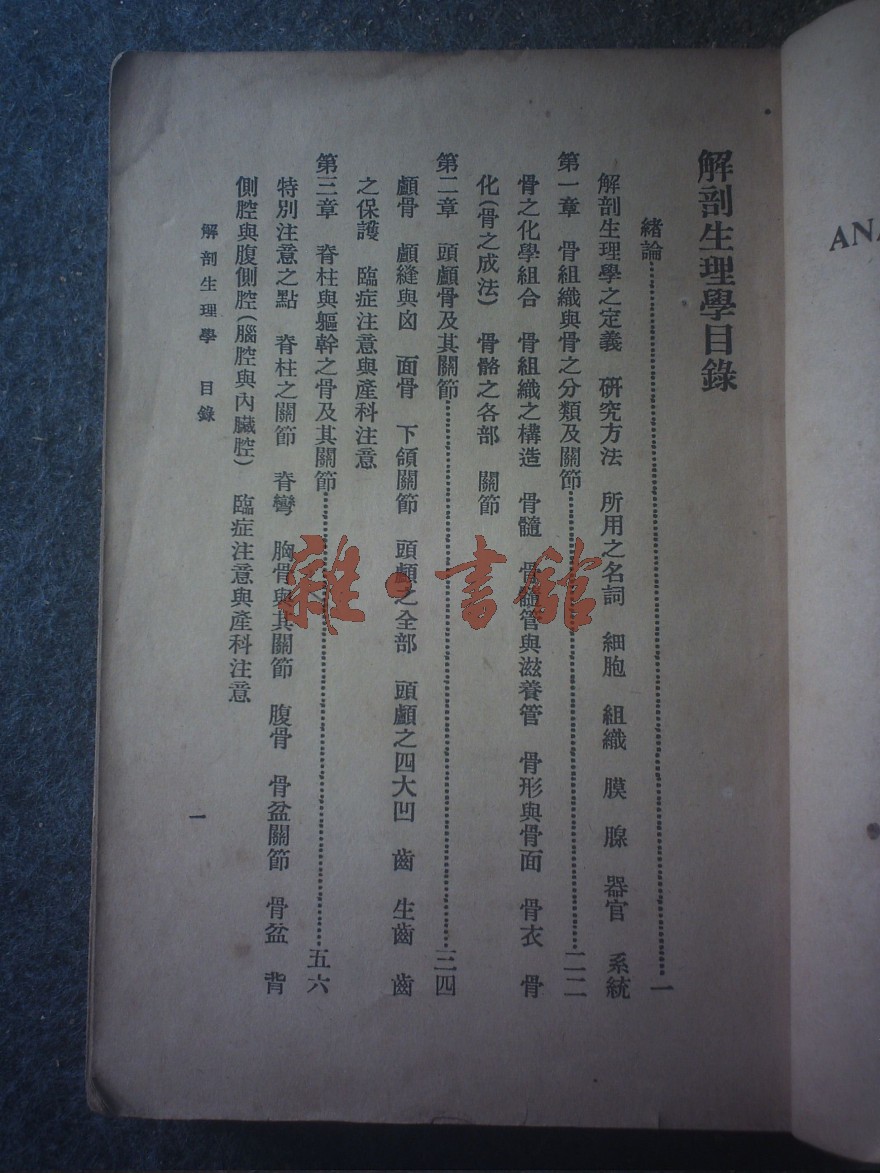 解剖生理學目錄
緒論……一
解剖生理學之定義 研究方法 所用之名詞 細胞 組織 膜 腺 器官 系統
第一章 骨組織與骨之分類及關節……二二
骨之化學組合 骨組織之構造 骨髓 骨髓管與滋養管 骨形與骨面 骨衣 骨
化(骨之成法) 骨骼之各部 關節
第二章 頭顱骨及其關節……三四
顱骨 顱縫與囟 面骨 下頜關節 頭顱之全部 頭顱之四大凹 齒 生齒 齒
之保護 臨症注意與產科注意
第三章 脊柱與軀幹之骨及其關節……五六
特別注意之點 脊柱之關節 脊彎 胸骨與其關節 腹骨 骨盆關節 骨盆 背
側腔與腹側腔(腦腔與內臟腔) 臨症注意與產科注意
解剖生理學 目錄
一
ANA
雜·書館